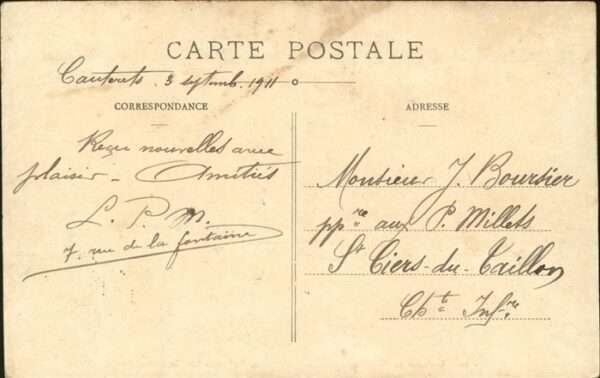 CARTE POSTALE
Cauterets. 3 septemb. 1911
CORRESPONDANCE
ADRESSE
Reçu nouvelles avec
plaisir – Amitiés
L. P. M.
7. rue de la fontaine
Monsieur J. Boursier
ppre aux P. Millets
St Ciers-du-Taillon
Chte Infre